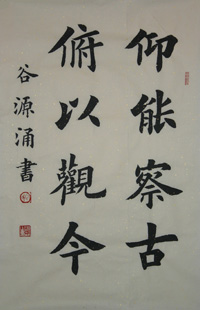 仰能察古
俯以觀今
谷源涌書